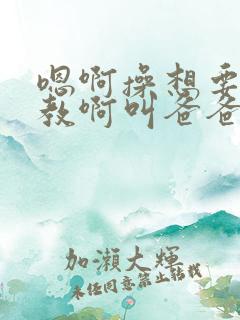 嗯啊操想要
教啊叫爸爸
加瀬大輝
未经同意禁止转载